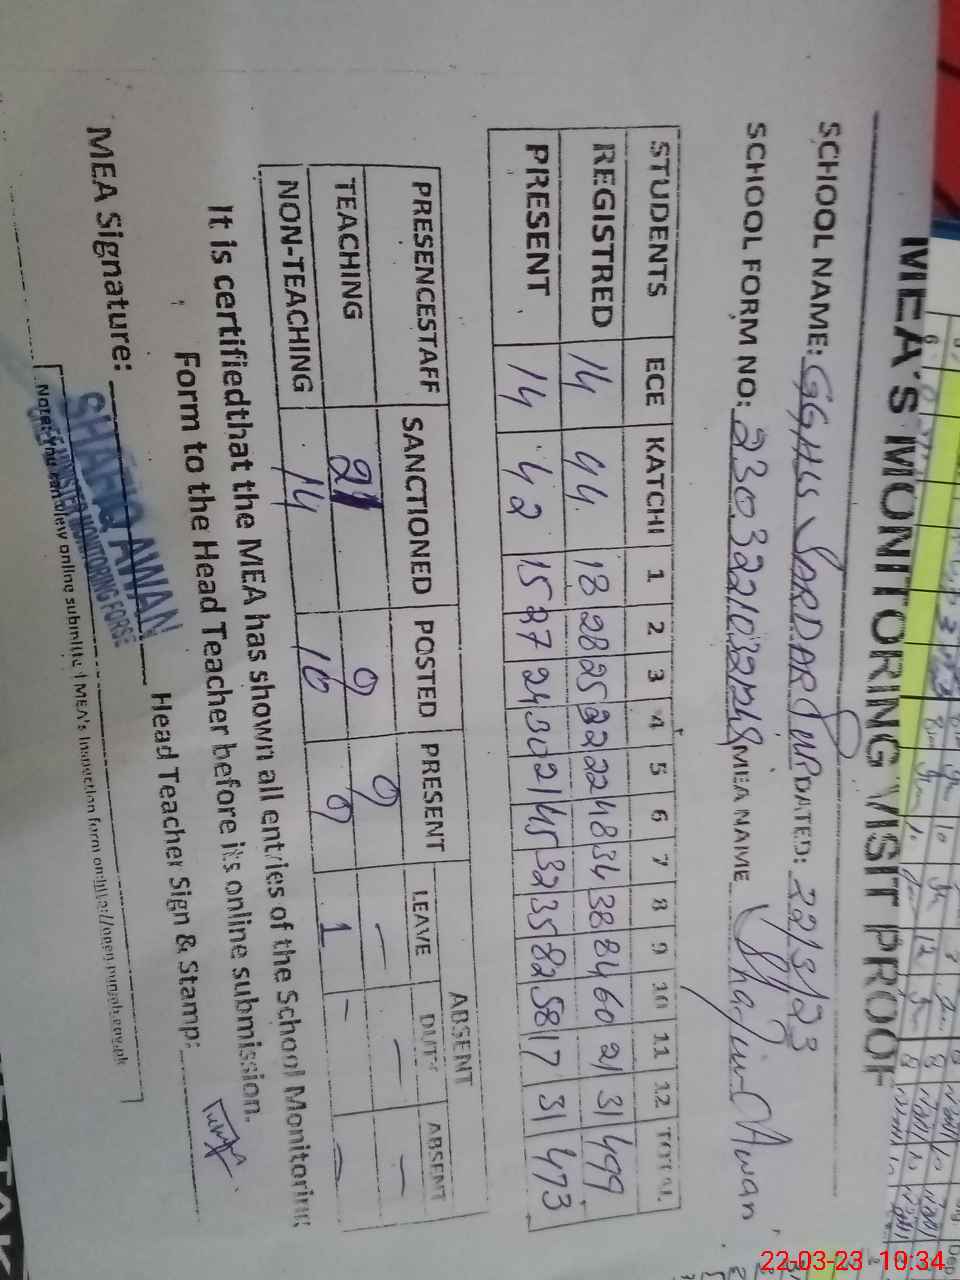 MEA'S MONITORING VISIT PROOF
SCHOOL NAME: GGHSS SARDARPUR DATED: 22/3/23
SCHOOL FORM NO: MEA NAME Awan
STUDENTS ECE KATCHI 1 2 3 4 5 6 7 8 9 10 11 12 TOTAL
REGISTRED 14 44 18 28 25 22 22 48 34 38 84 60 21 31 499
PRESENT 14 42 15 37 24 30 21 45 32 35 82 58 17 31 473
PRESENCESTAFF SANCTIONED POSTED PRESENT ABSENT
LEAVE DUTY ABSENT
TEACHING 21 9 9 - - -
NON-TEACHING 14 10 9 1 - -
It is certifiedthat the MEA has shown all entries of the School Monitoring
Form to the Head Teacher before its online submission.
MEA Signature: Head Teacher Sign & Stamp:
SHAFIQ AWAN
MONITORING FORSE
Note: You can view online submitted MEA's Inspection form on:http://open.punjab.gov.pk
22-03-23 10:34